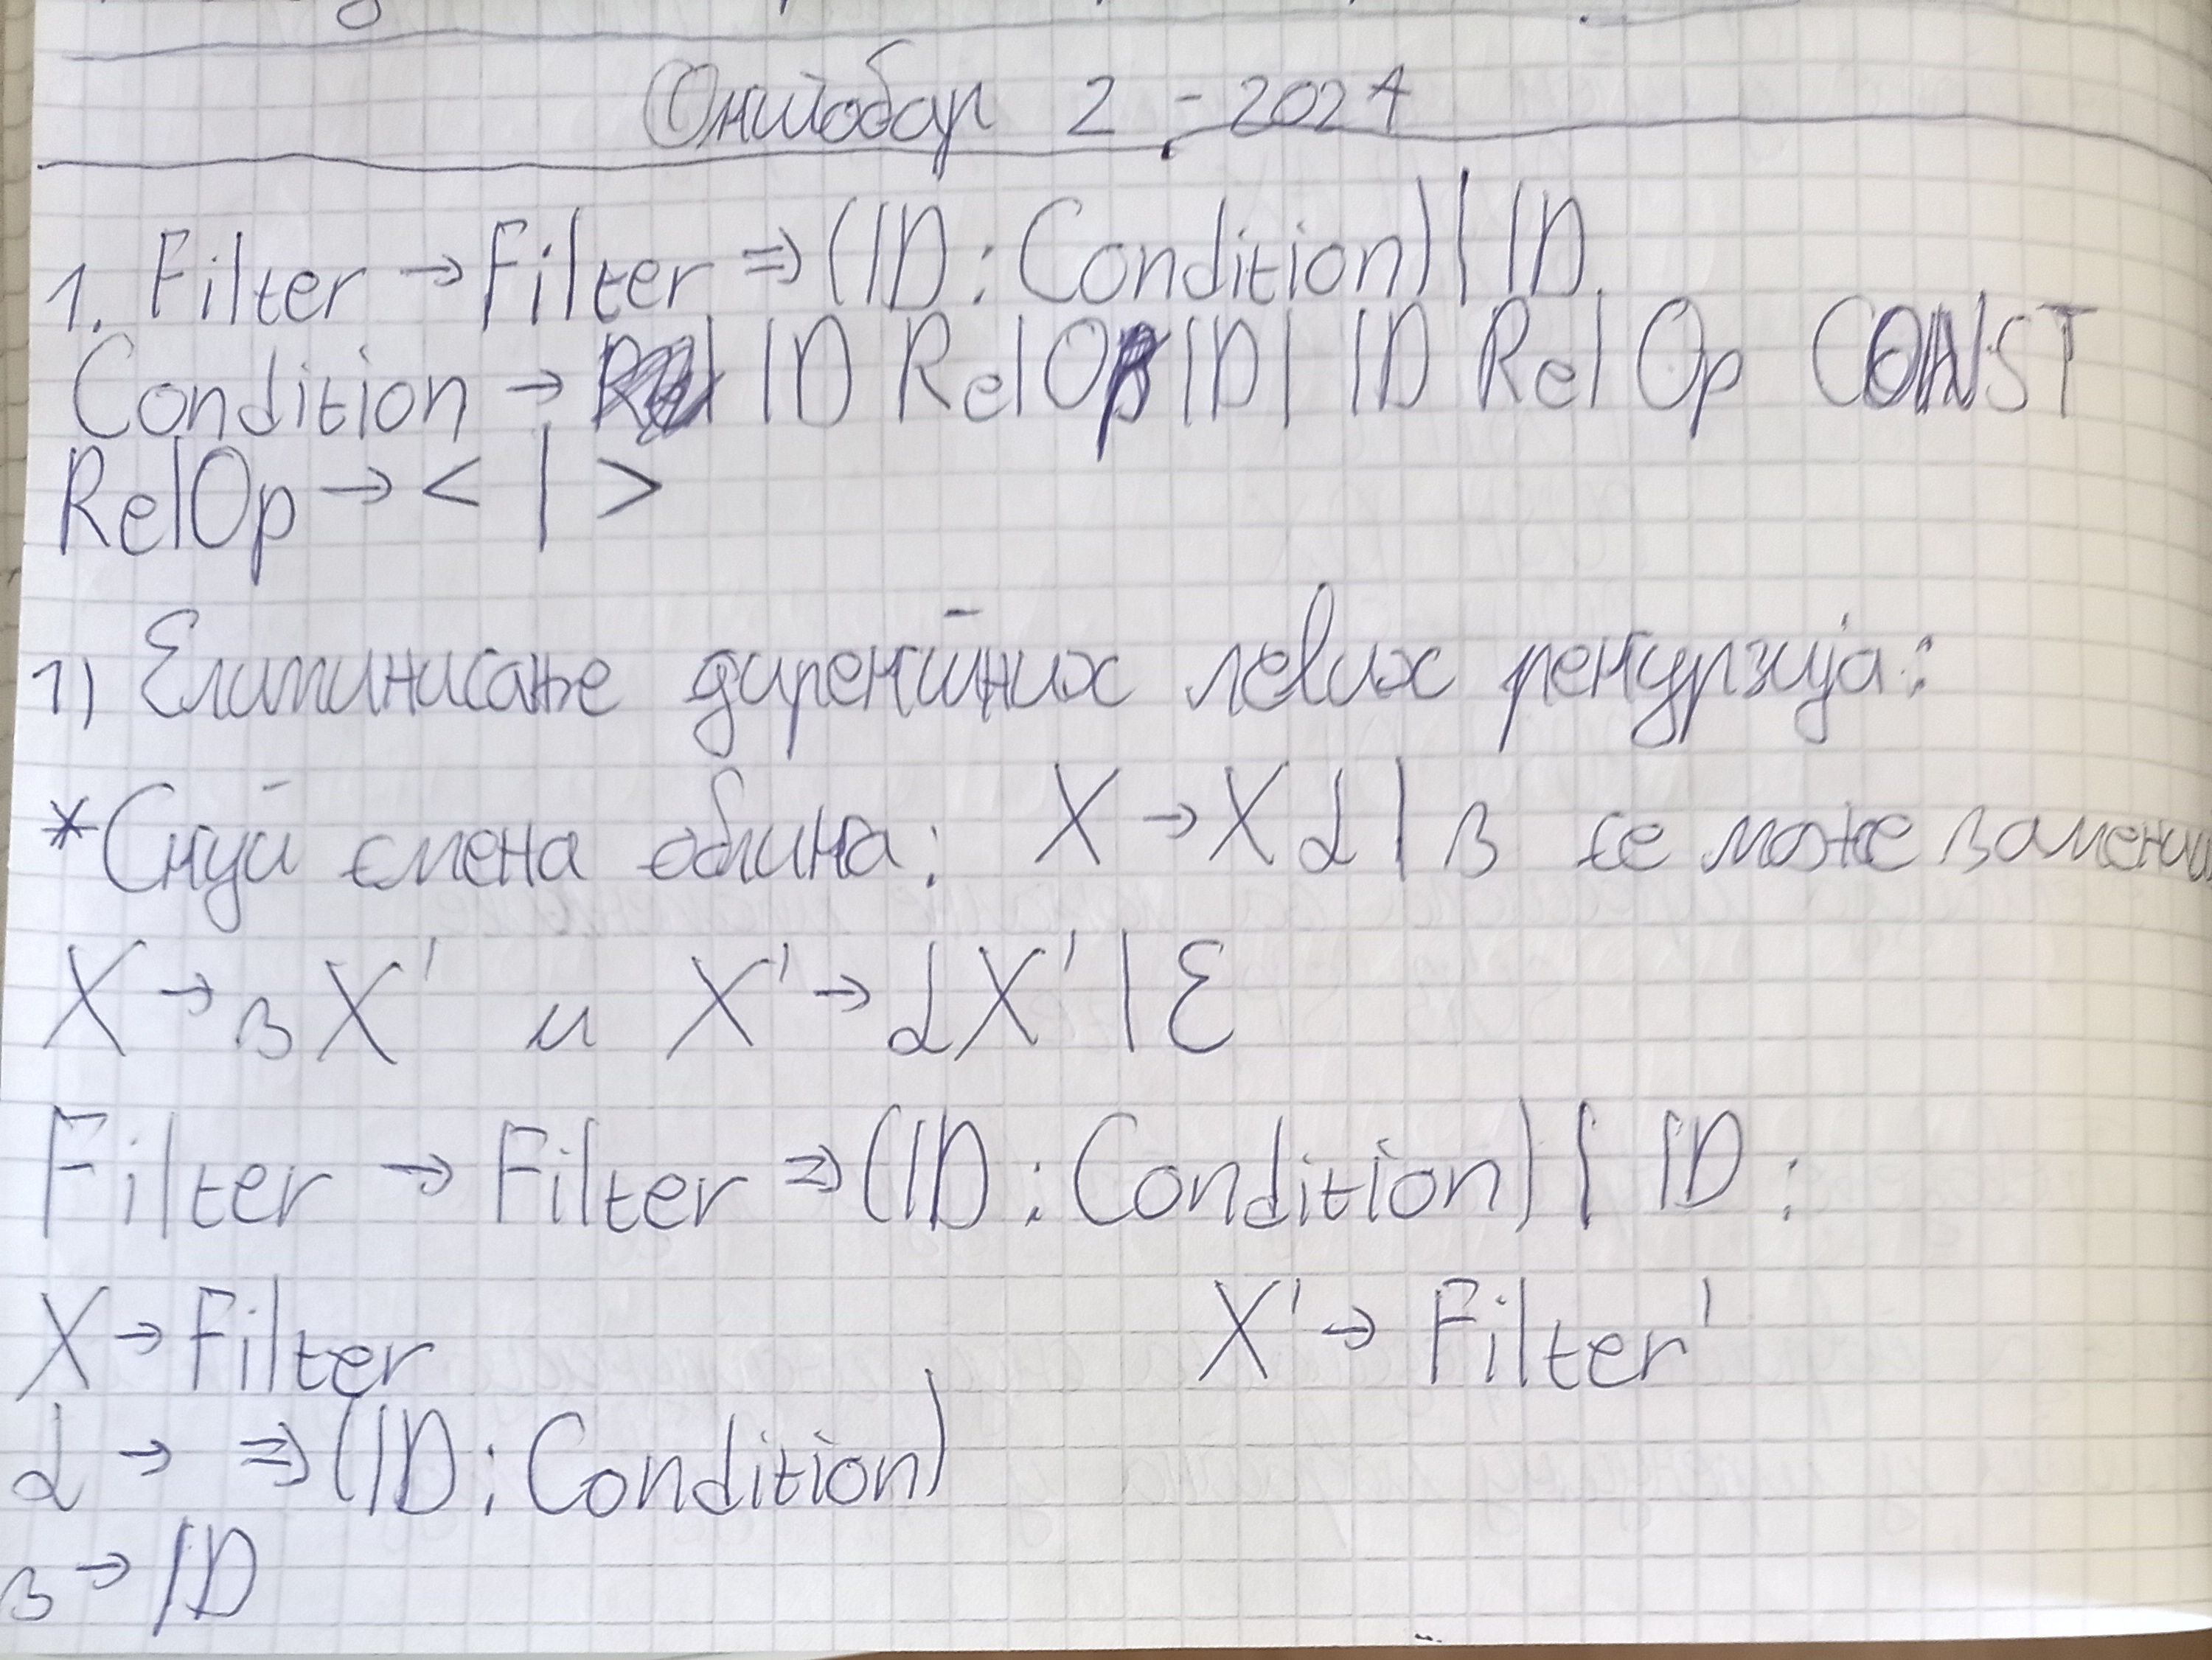 Октобар 2 - 2024
1. Filter → Filter => (ID : Condition) | ID
Condition → ID RelOp ID | ID RelOp CONST
RelOp → < | >
1) Елиминисање директних левих рекурзија:
*Скуп смена облика: X → X α | β се може замени
X → β X' и X' → α X' | ε
Filter → Filter => (ID : Condition) | ID :
X → Filter X' → Filter'
α → => (ID : Condition)
β → ID